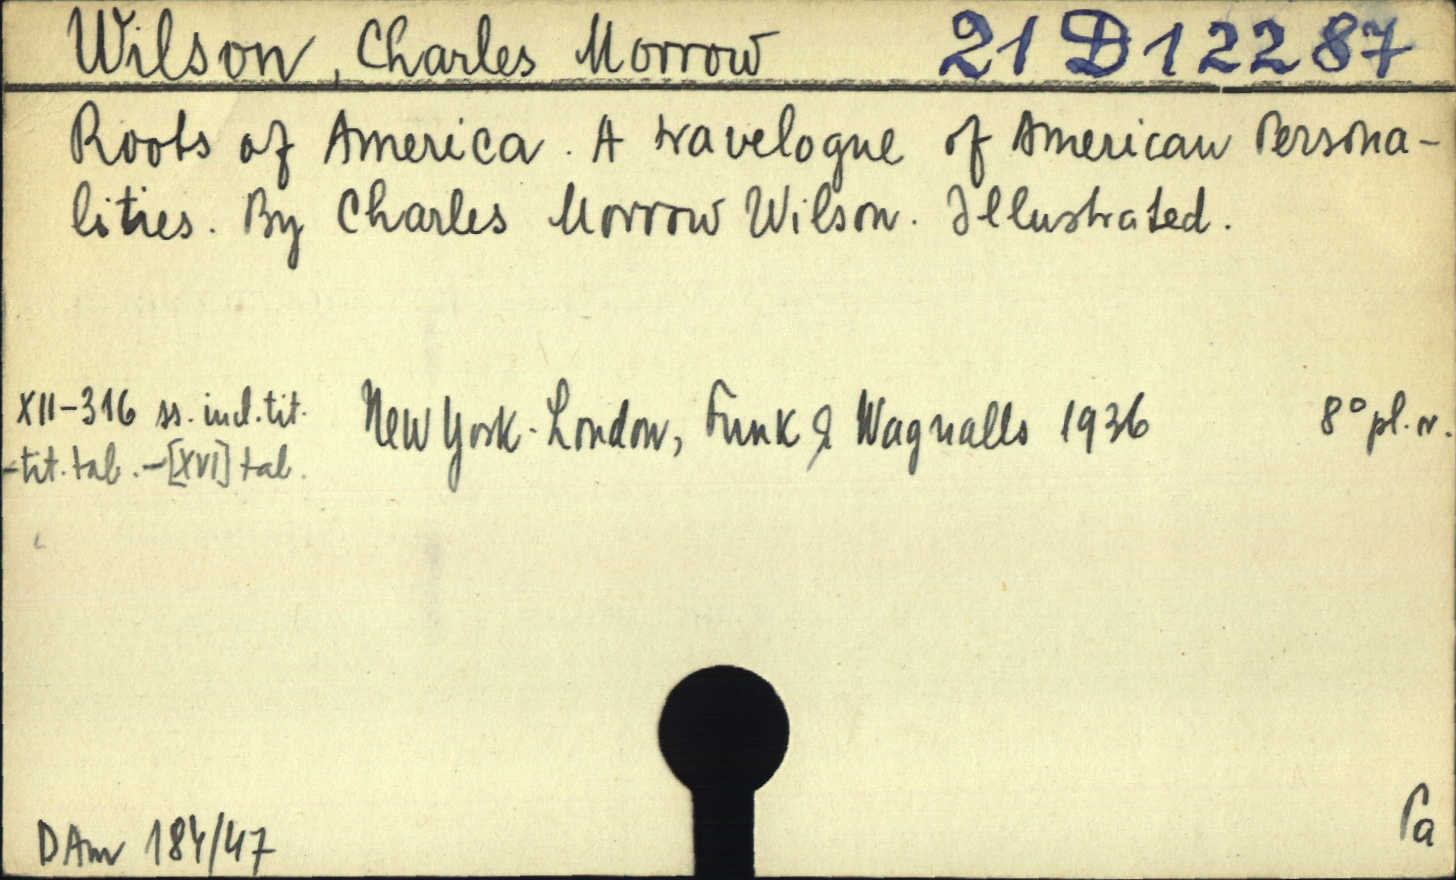 Wilson, Charles Morrow 21 D 12287
Roots of America. A travelogue of American Persona-
lities. By Charles Morrow Wilson. Illustrated.
XII-316 ss. incl. tit. New York-London, Funk & Wagnalls 1936 8° pl. v.
-tit. tab. -[XVI] tab.
D Am 184/47 Pa